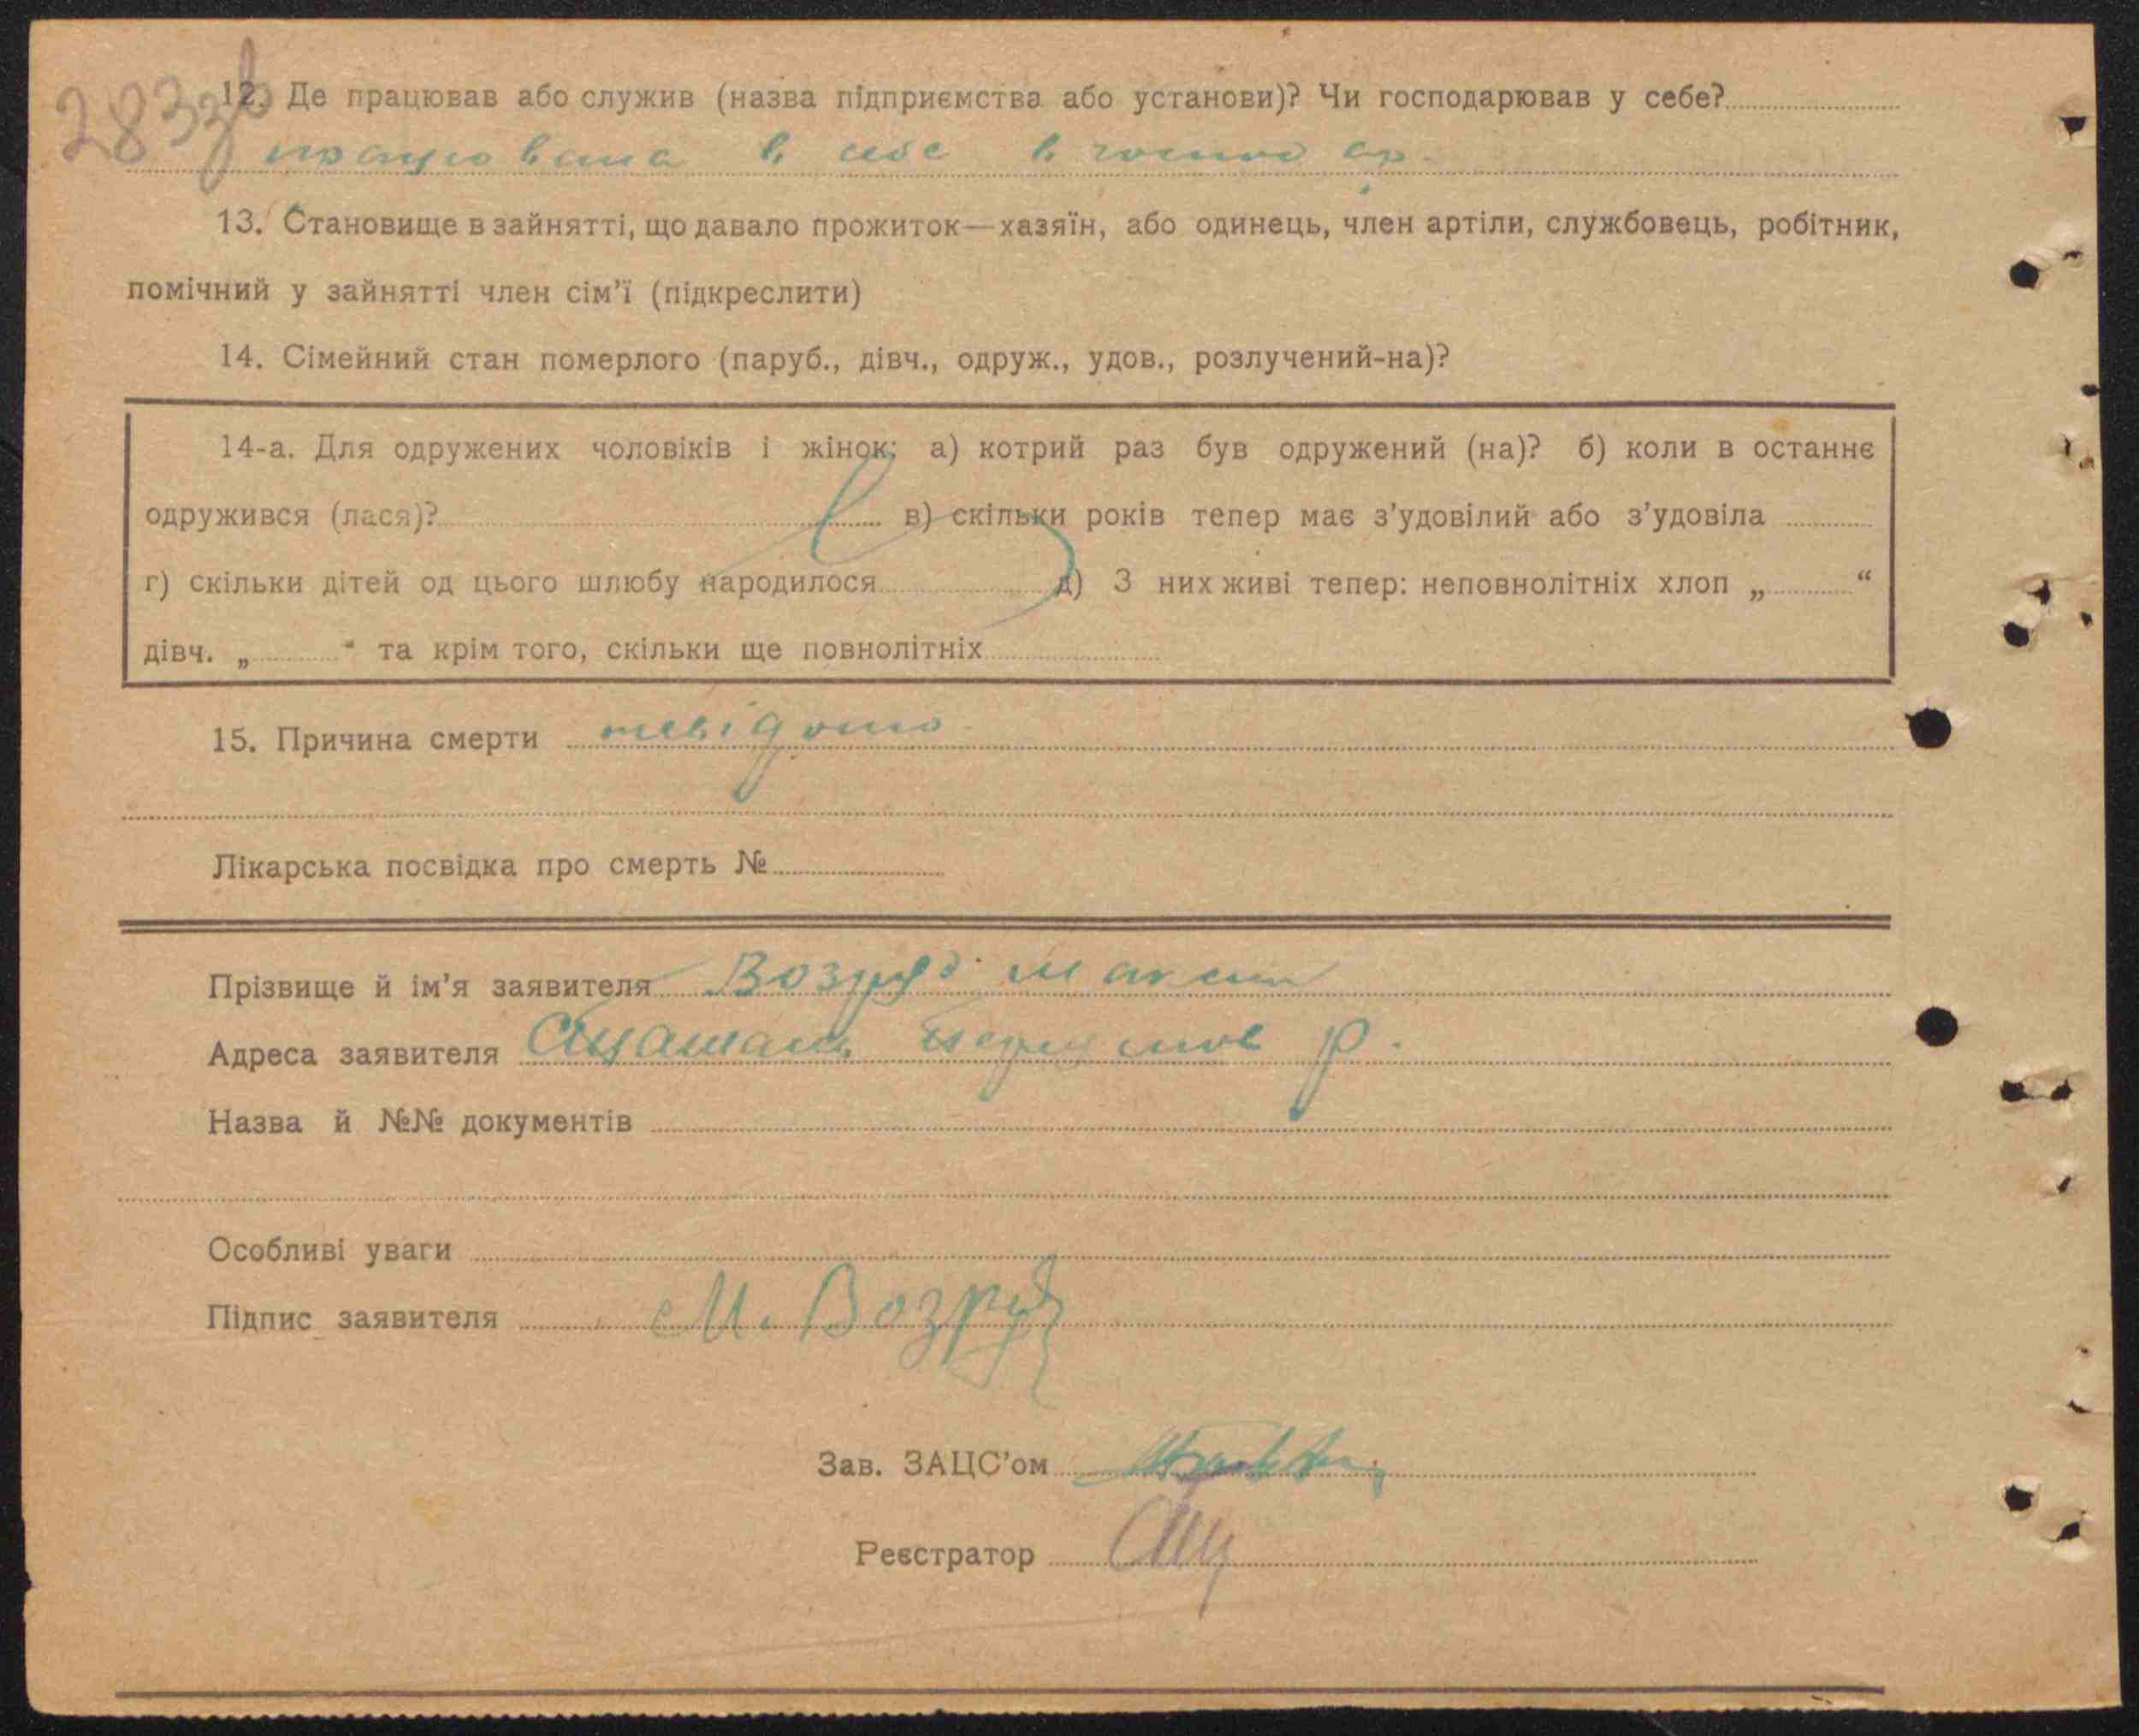 283зв
12. Де працював або служив (назва підприємства або установи)? Чи господарював у себе?
працювала в себе в господар.
13. Становище в зайнятті, що давало прожиток—хазяїн, або одинець, член артіли, службовець, робітник,
помічний у зайнятті член сім'ї (підкреслити)
14. Сімейний стан померлого (паруб., дівч., одруж., удов., розлучений-на)?
14-а. Для одружених чоловіків і жінок: а) котрий раз був одружений (на)? б) коли в останнє
одружився (лася)? в) скільки років тепер має з'удовілий або з'удовіла
г) скільки дітей од цього шлюбу народилося д) З них живі тепер: неповнолітніх хлоп „ “
дівч. „ “ та крім того, скільки ще повнолітніх
15. Причина смерти невідомо
Лікарська посвідка про смерть №
Прізвище й ім'я заявителя Возруд Максим
Адреса заявителя р.
Назва й №№ документів
Особливі уваги
Підпис заявителя М. Возруд
Зав. ЗАЦС'ом
Реєстратор